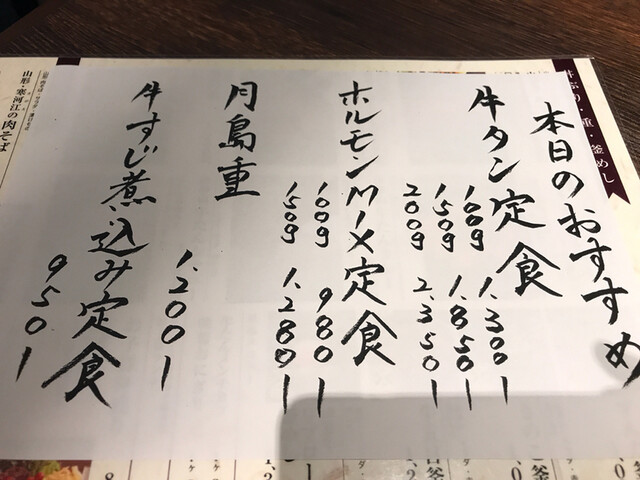 本日のおすすめ
牛タン定食
100g 1.300ー
150g 1.850ー
200g 2.350ー
ホルモンMIX定食
100g 980ー
150g 1.280ー
月島重
1.200ー
牛すじ煮込み定食
950ー
丼ぶり・重・釜めし
山形・寒河江の肉そば